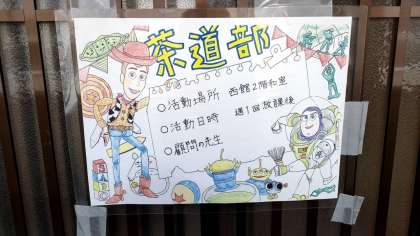 茶道部
○活動場所 西館2階和室
○活動日時 週1回放課後
○顧問の先生